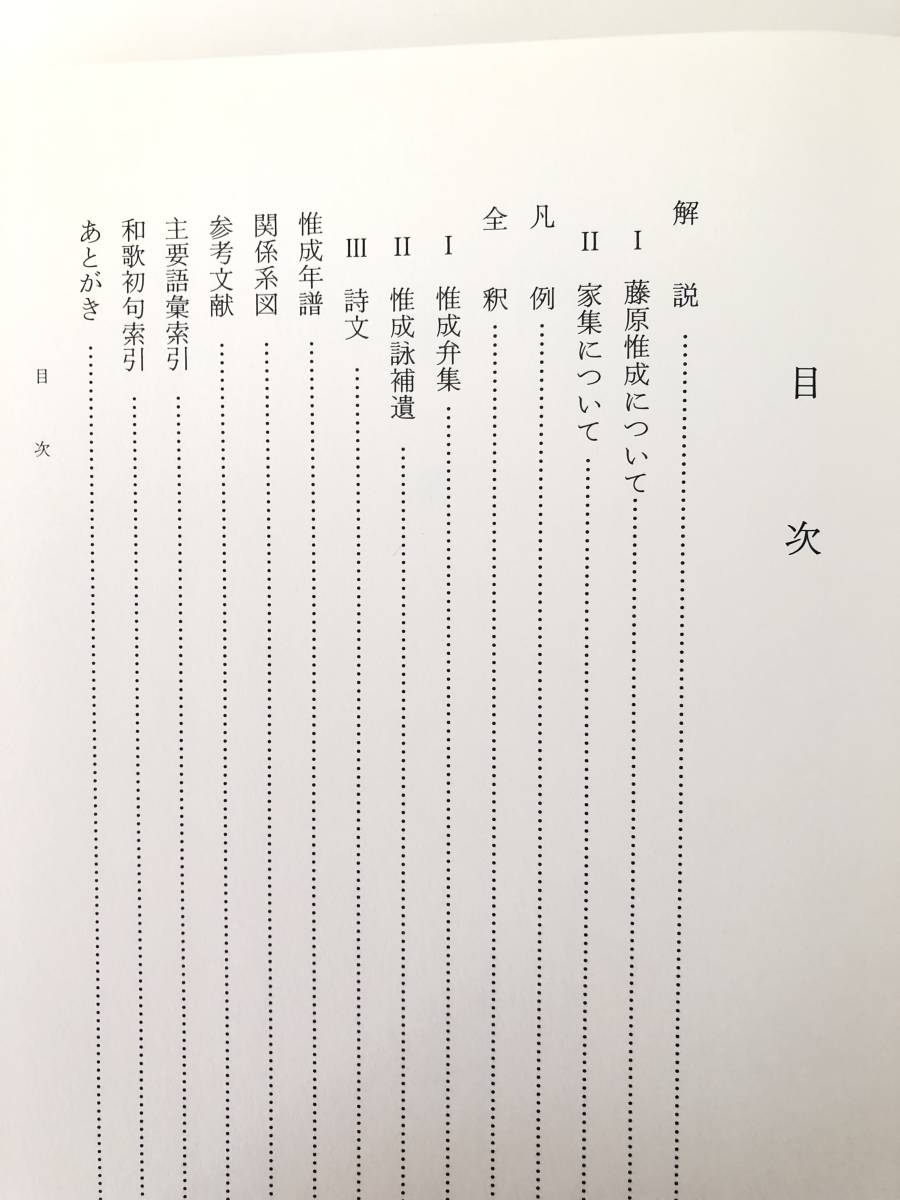 目次
解説……………………………………
Ⅰ 藤原惟成について……………………………………
Ⅱ 家集について……………………………………
凡例……………………………………
全釈……………………………………
Ⅰ 惟成弁集……………………………………
Ⅱ 惟成詠補遺……………………………………
Ⅲ 詩文……………………………………
惟成年譜……………………………………
関係系図……………………………………
参考文献……………………………………
主要語彙索引……………………………………
和歌初句索引……………………………………
あとがき……………………………………
目次